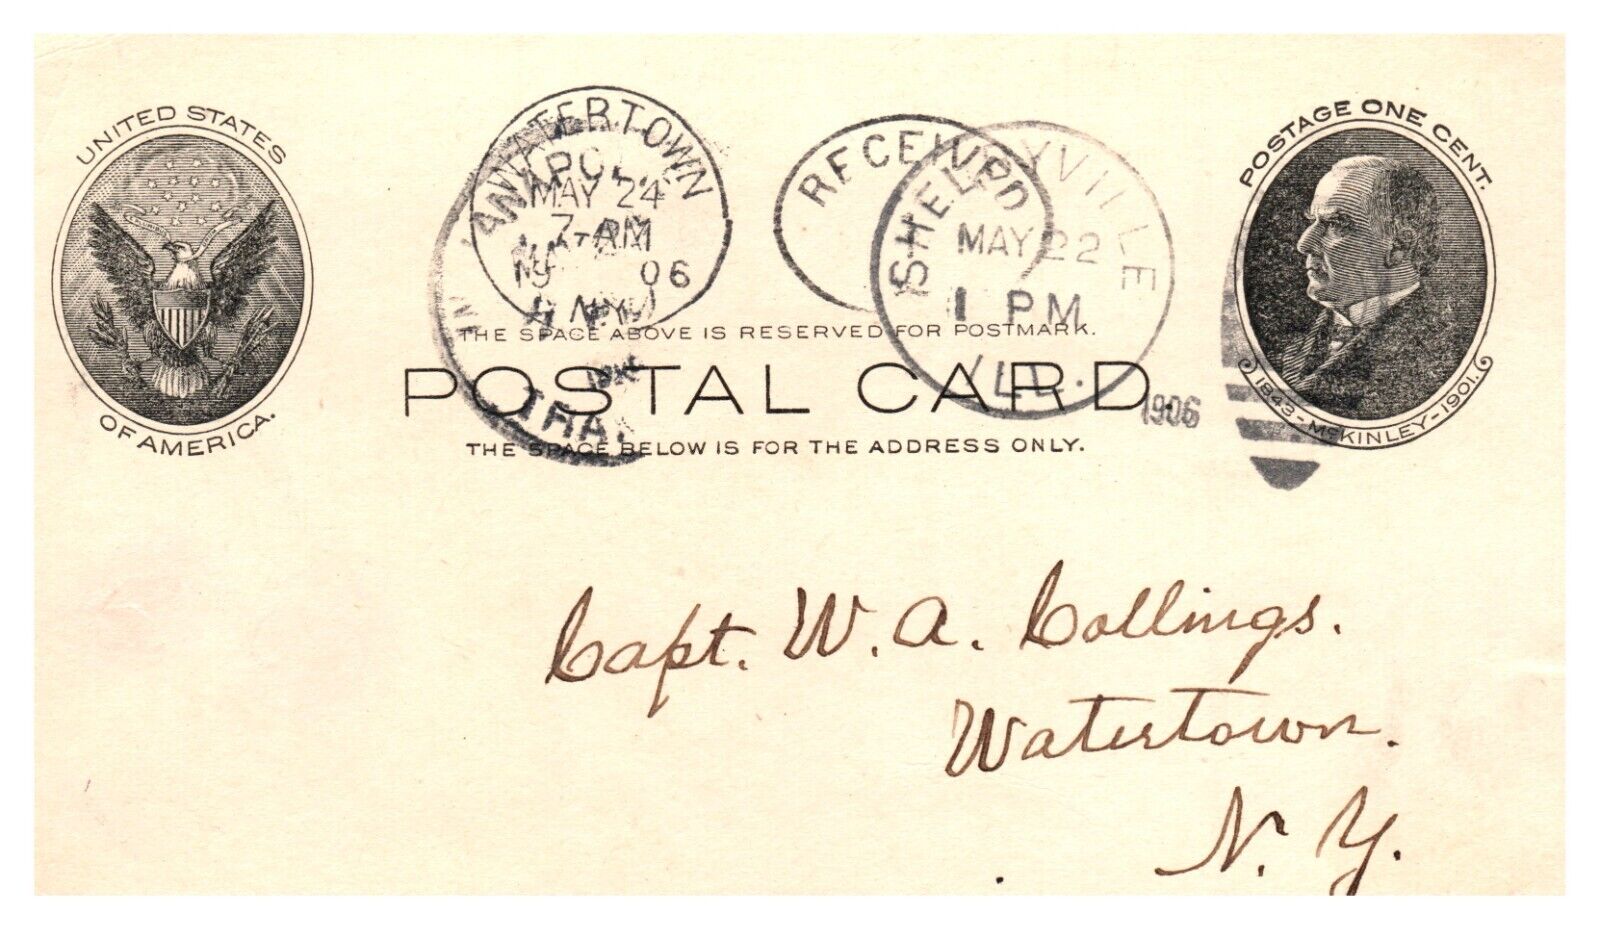 UNITED STATES
OF AMERICA.
WATERTOWN
MAY 24
7-AM
06
N.Y.
RECEIVED
SHELBYVILLE
MAY 22
1 PM
ILL.
1906
POSTAGE ONE CENT.
1843-McKINLEY-1901.
THE SPACE ABOVE IS RESERVED FOR POSTMARK.
POSTAL CARD.
THE SPACE BELOW IS FOR THE ADDRESS ONLY.
Capt. W. A. Collings.
Watertown.
N. Y.